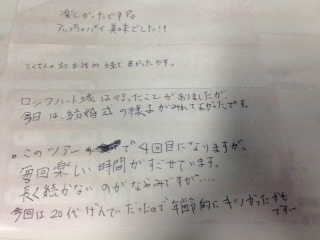 楽しかったです
アップルパイ美味でした!!
たくさんの方とお話が出来て良かったです。
ロックハート城は来たことがありましたが、
今日は、結婚式の様子がみれてよかったです。
。このツアーで4回目になりますが、
毎回楽しい時間がすごせています。
長く続かないのがなやみですが....
今回は20代げんていだったので年齢的にキツかったかも
です…